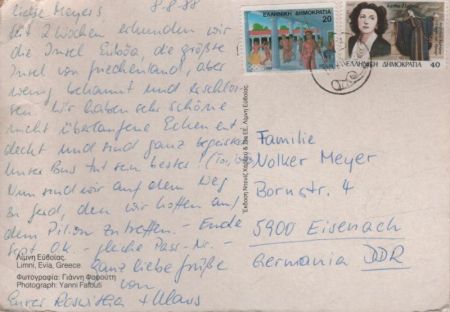 Liebe Meyers 8.8.88
Seit 2 Wochen erkunden wir
die Insel Euböa, die größte
Insel von Griechenland, aber
wenig bekannt und erschlos-
sen. Wir haben sehr schöne
nicht überlaufene Ecken ent
deckt und sind ganz begeistert
Unser Bus tut sein bestes!
Nun sind wir auf dem Weg
zu Gerd, den wir hoffen auf
dem Pilion zu treffen. - Ende
Sept. Ok. - gleiche Pass-Nr. -
Ganz liebe Grüße
von
Eurer Roswitha + Klaus
Λίμνη Εύβοίας.
Limni, Evia, Greece.
Φωτογραφία: Γιάννη Φαφούτη
Photograph: Yanni Fafouti
Λίμνη Εύβοίας
ΕΛΛΗΝΙΚΗ ΔΗΜΟΚΡΑΤΙΑ
20
ΕΛΛΗΝΙΚΗ ΔΗΜΟΚΡΑΤΙΑ 40
Familie
Volker Meyer
Bornstr. 4
5900 Eisenach
Germania DDR